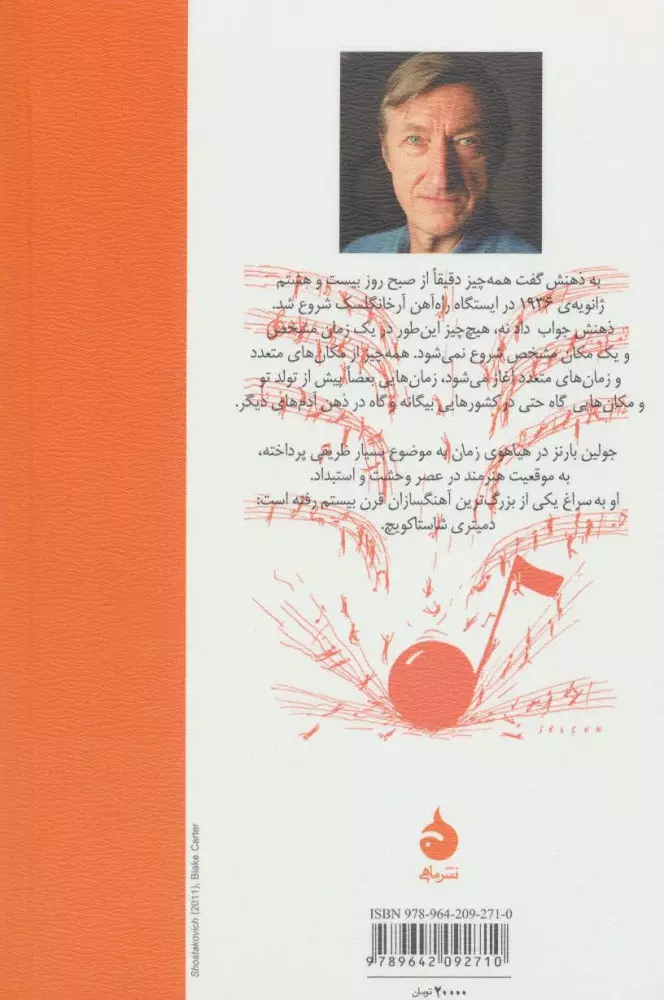 به ذهنش گفت همه‌چیز دقیقاً از صبح روز بیست و هشتم
ژانویه‌ی ۱۹۳۶ در ایستگاه راه‌آهن آرخانگلسک شروع شد.
ذهنش جواب داد نه، هیچ‌چیز این‌طور در یک زمان مشخص
و یک مکان مشخص شروع نمی‌شود. همه‌چیز از مکان‌های متعدد
و زمان‌های متعدد آغاز می‌شود، زمان‌هایی بعضاً پیش از تولد تو
و مکان‌هایی گاه حتی در کشورهایی بیگانه و گاه در ذهن آدم‌های دیگر.
جولین بارنز در هیاهوی زمان به موضوع بسیار ظریفی پرداخته،
به موقعیت هنرمند در عصر وحشت و استبداد.
او به سراغ یکی از بزرگ‌ترین آهنگسازان قرن بیستم رفته است:
دمیتری شاستاکویچ.
SELÇUK
Shostakovich (2011), Blake Carter
نشرماهی
ISBN 978-964-209-271-0
9789642092710
۲۰۰۰۰ تومان